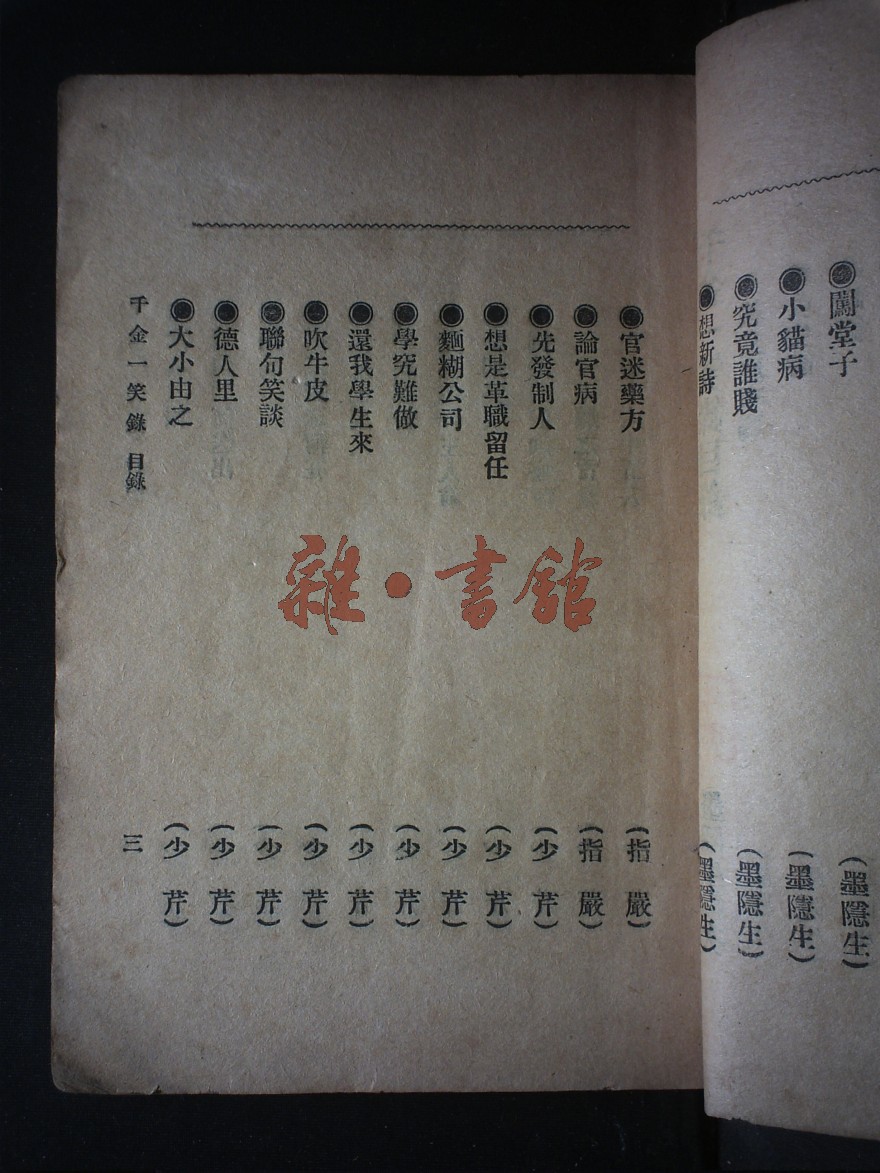 ●闖堂子 (墨隱生)
●小貓病 (墨隱生)
●究竟誰賤 (墨隱生)
●想新詩 (墨隱生)
●官迷藥方 (指嚴)
●論官病 (指嚴)
●先發制人 (少芹)
●想是革職留任 (少芹)
●麵糊公司 (少芹)
●學究難做 (少芹)
●還我學生來 (少芹)
●吹牛皮 (少芹)
●聯句笑談 (少芹)
●德人里 (少芹)
●大小由之 (少芹)
千金一笑錄 目錄 三
雜·書館